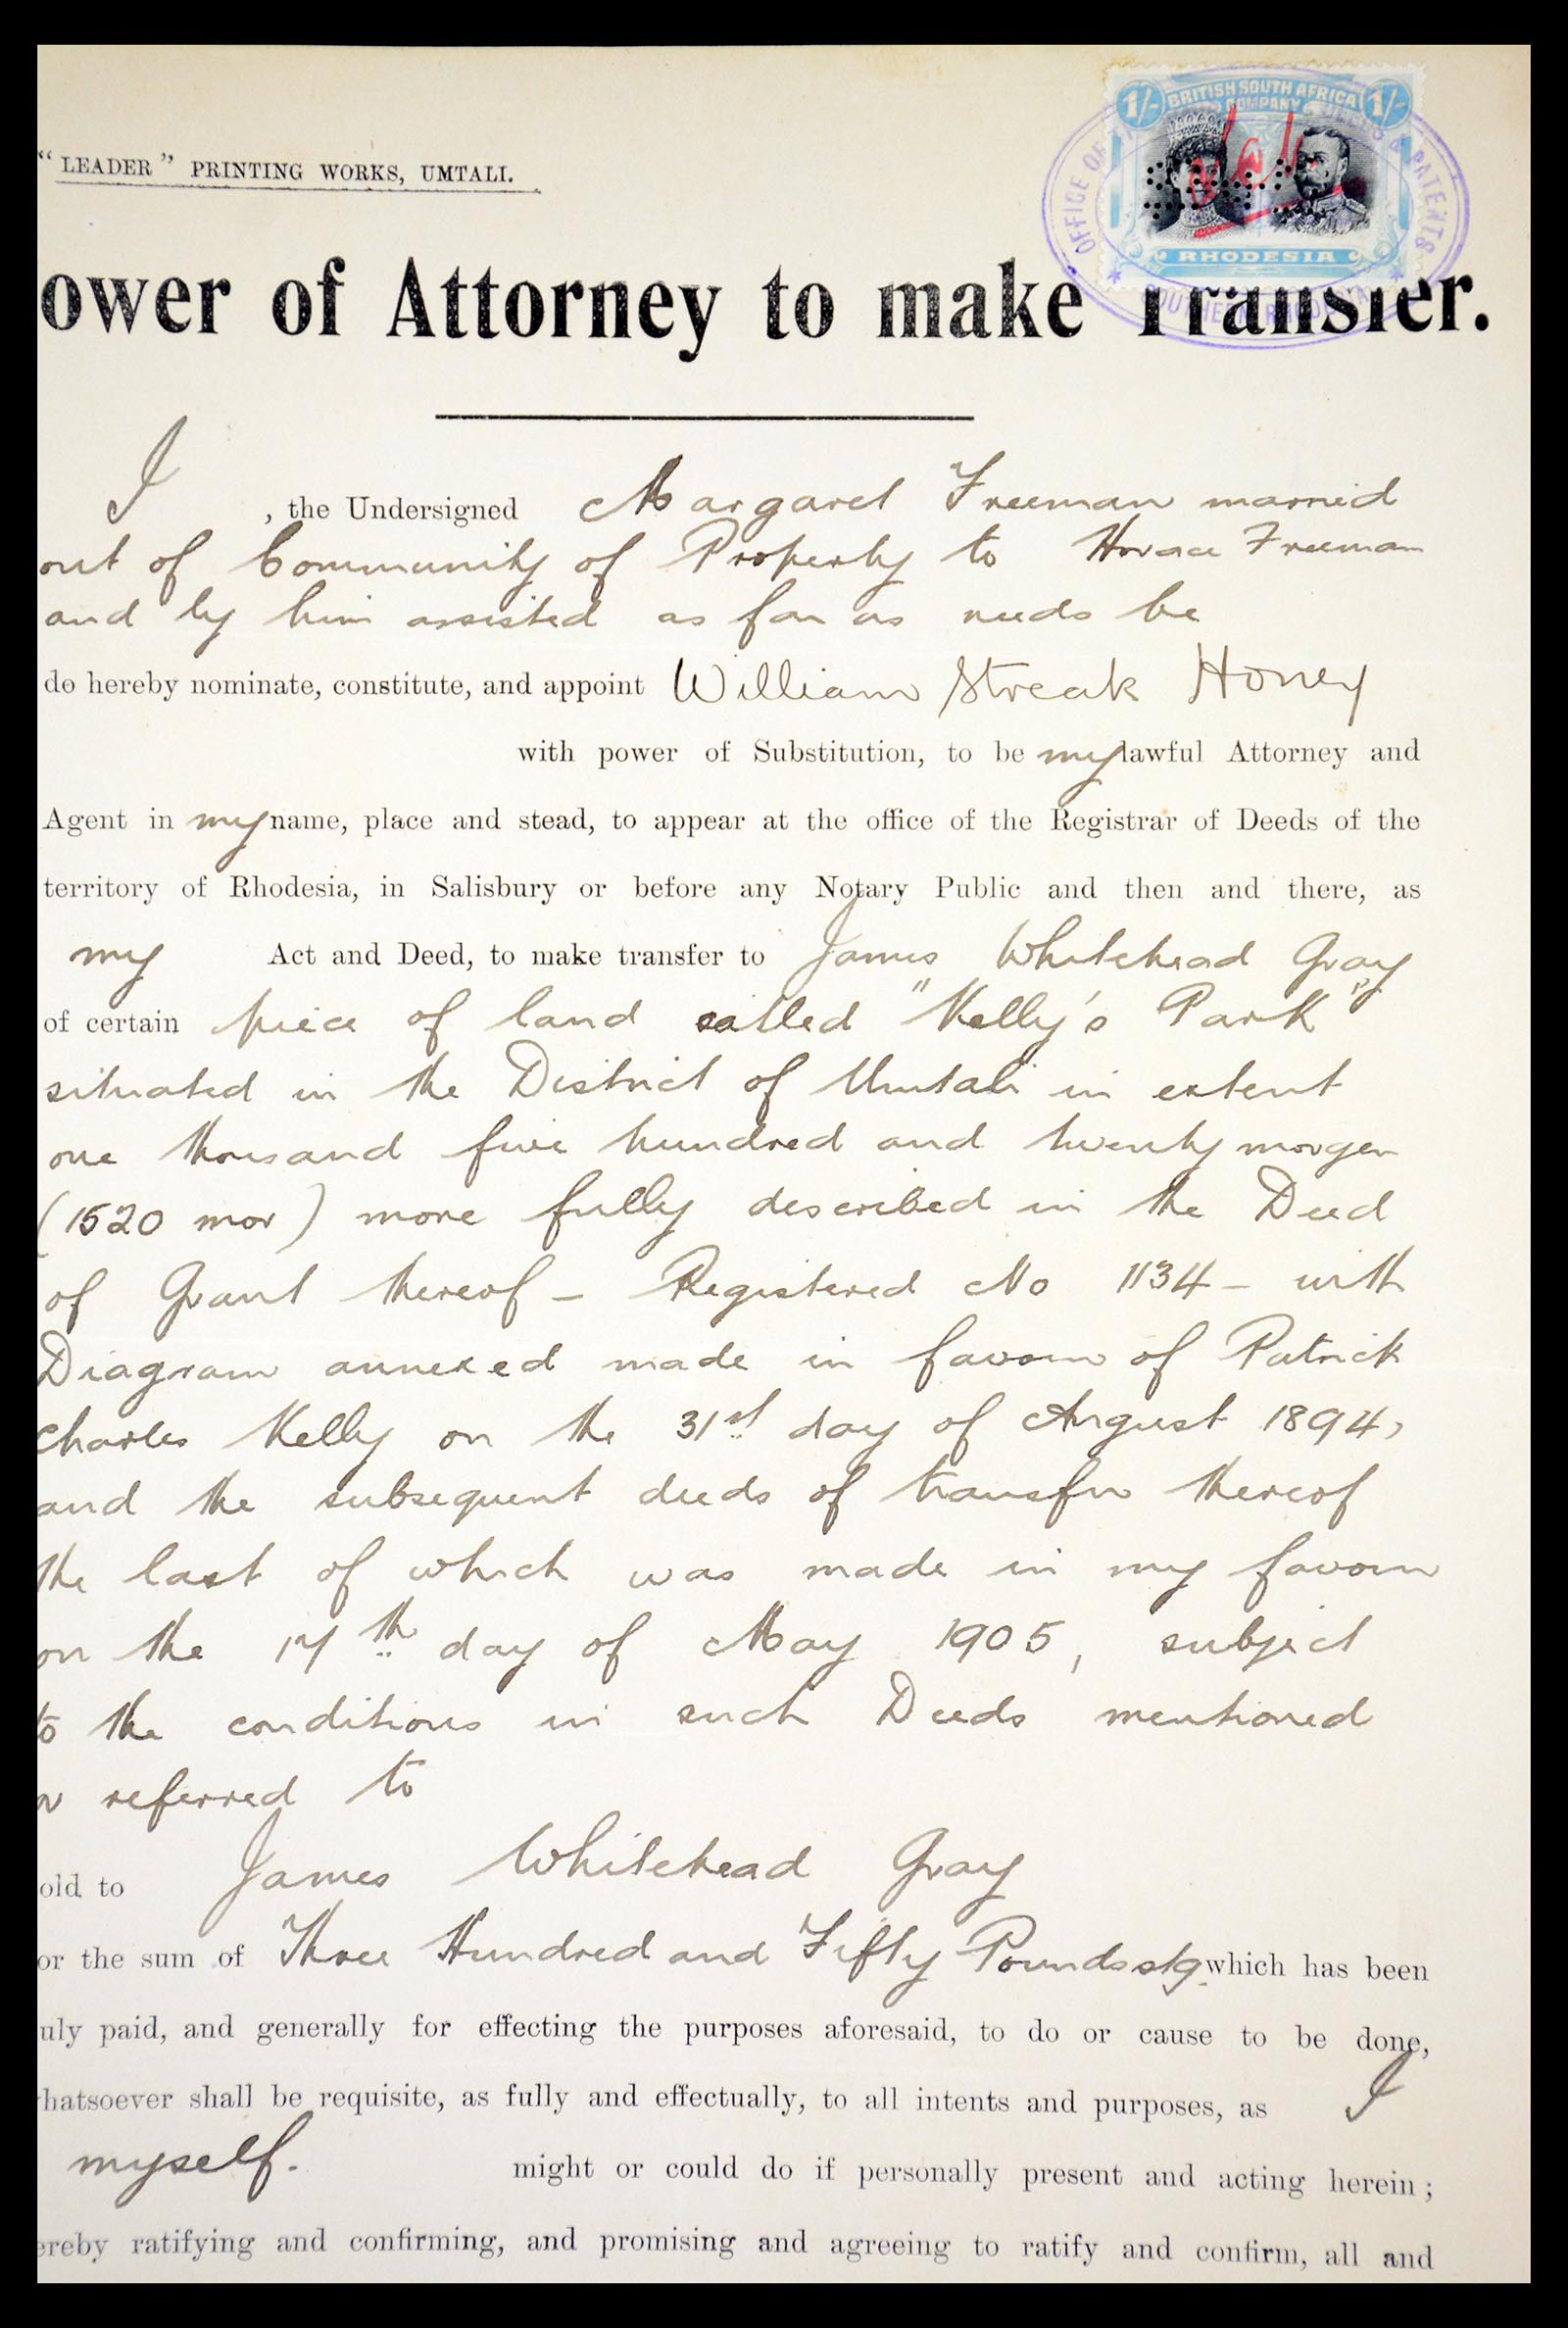 "LEADER" PRINTING WORKS, UMTALI.
1/- BRITISH SOUTH AFRICA COMPANY 1/-
RHODESIA
OFFICE OF PATENTS
ower of Attorney to make Transfer.
I , the Undersigned Margaret Freeman married
out of Community of Property to Horace Freeman
and by him assisted as far as needs be
do hereby nominate, constitute, and appoint William Streak Honey
with power of Substitution, to be my lawful Attorney and
Agent in my name, place and stead, to appear at the office of the Registrar of Deeds of the
territory of Rhodesia, in Salisbury or before any Notary Public and then and there, as
my Act and Deed, to make transfer to James Whitehead Gray
of certain piece of land called "Kelly's Park"
situated in the District of Umtali in extent
one thousand five hundred and twenty morgen
(1520 mor) more fully described in the Deed
of Grant thereof - Registered No 1134 - with
Diagram annexed made in favour of Patrick
Charles Kelly on the 31st day of August 1894,
and the subsequent deeds of transfer thereof
the last of which was made in my favour
on the 17th day of May 1905, subject
to the conditions in such Deeds mentioned
r referred to
old to James Whitehead Gray
or the sum of Three Hundred and Fifty Pounds stg. which has been
uly paid, and generally for effecting the purposes aforesaid, to do or cause to be done,
hatsoever shall be requisite, as fully and effectually, to all intents and purposes, as I
myself. might or could do if personally present and acting herein ;
ereby ratifying and confirming, and promising and agreeing to ratify and confirm, all and